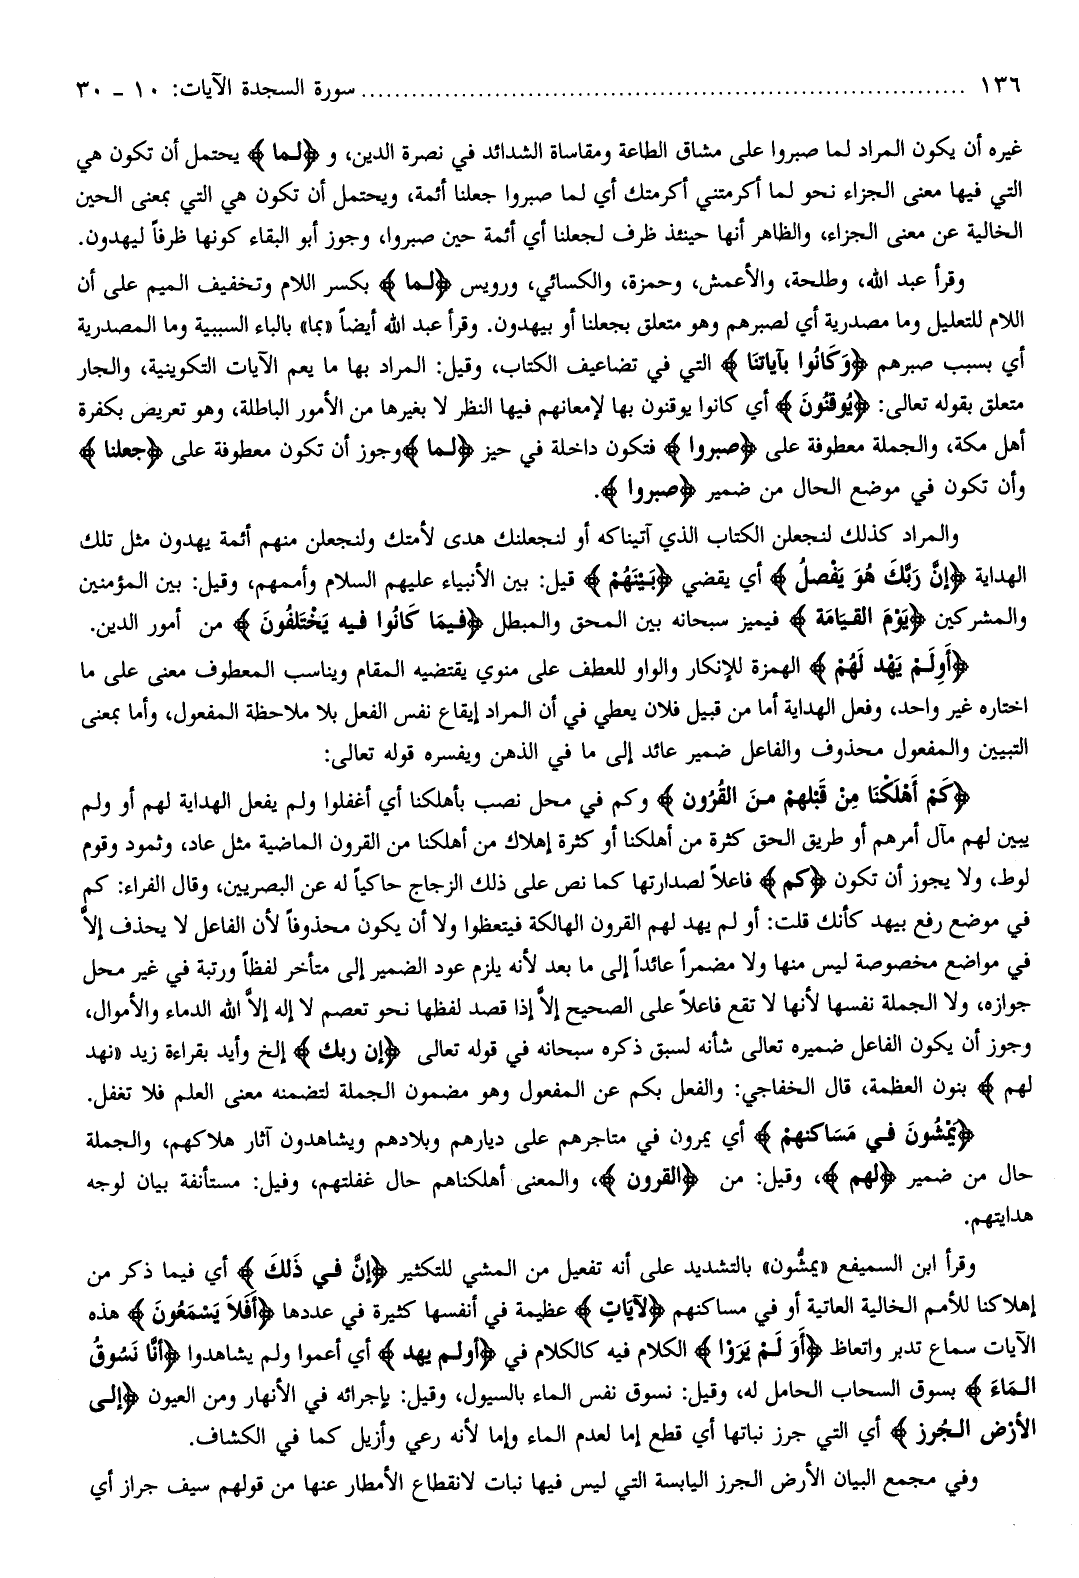 ١٣٦ ........................................................................ سورة السجدة الآيات: ١٠ - ٣٠
غيره أن يكون المراد لما صبروا على مشاق الطاعة ومقاساة الشدائد في نصرة الدين، و ﴿لما﴾ يحتمل أن تكون هي
التي فيها معنى الجزاء نحو لما أكرمتني أكرمتك أي لما صبروا جعلنا أئمة، ويحتمل أن تكون هي التي بمعنى الحين
الخالية عن معنى الجزاء، والظاهر أنها حينئذ ظرف لجعلنا أي أئمة حين صبروا، وجوز أبو البقاء كونها ظرفاً ليهدون.
وقرأ عبد الله، وطلحة، والأعمش، وحمزة، والكسائي، ورويس ﴿لما﴾ بكسر اللام وتخفيف الميم على أن
اللام للتعليل وما مصدرية أي لصبرهم وهو متعلق بجعلنا أو بيهدون. وقرأ عبد الله أيضاً «بما» بالباء السببية وما المصدرية
أي بسبب صبرهم ﴿وَكَانُوا بآياتنَا﴾ التي في تضاعيف الكتاب، وقيل: المراد بها ما يعم الآيات التكوينية، والجار
متعلق بقوله تعالى: ﴿يُوقنُونَ﴾ أي كانوا يوقنون بها لإمعانهم فيها النظر لا بغيرها من الأمور الباطلة، وهو تعريض بكفرة
أهل مكة، والجملة معطوفة على ﴿صبروا﴾ فتكون داخلة في حيز ﴿لما﴾وجوز أن تكون معطوفة على ﴿جعلنا﴾
وأن تكون في موضع الحال من ضمير ﴿صبروا﴾.
والمراد كذلك لنجعلن الكتاب الذي آتيناكه أو لنجعلنك هدى لأمتك ولنجعلن منهم أئمة يهدون مثل تلك
الهداية ﴿إنَّ رَبَّكَ هُوَ يَفْصلُ﴾ أي يقضي ﴿بَيْنَهُمْ﴾ قيل: بين الأنبياء عليهم السلام وأممهم، وقيل: بين المؤمنين
والمشركين ﴿يَوْمَ القيَامَة﴾ فيميز سبحانه بين المحق والمبطل ﴿فيمَا كَانُوا فيه يَخْتَلفُونَ﴾ من أمور الدين.
﴿أَوِلَمْ يَهْد لَهُمْ﴾ الهمزة للإنكار والواو للعطف على منوي يقتضيه المقام ويناسب المعطوف معنى على ما
اختاره غير واحد، وفعل الهداية أما من قبيل فلان يعطي في أن المراد إيقاع نفس الفعل بلا ملاحظة المفعول، وأما بمعنى
التبيين والمفعول محذوف والفاعل ضمير عائد إلى ما في الذهن ويفسره قوله تعالى:
﴿كَمْ أَهْلَكْنَا مِنْ قَبْلهمْ منَ القُرُون﴾ وكم في محل نصب بأهلكنا أي أغفلوا ولم يفعل الهداية لهم أو ولم
يبين لهم مآل أمرهم أو طريق الحق كثرة من أهلكنا أو كثرة إهلاك من أهلكنا من القرون الماضية مثل عاد، وثمود وقوم
لوط، ولا يجوز أن تكون ﴿كم﴾ فاعلاً لصدارتها كما نص على ذلك الزجاج حاكياً له عن البصريين، وقال الفراء: كم
في موضع رفع بيهد كأنك قلت: أو لم يهد لهم القرون الهالكة فيتعظوا ولا أن يكون محذوفاً لأن الفاعل لا يحذف إلاَّ
في مواضع مخصوصة ليس منها ولا مضمراً عائداً إلى ما بعد لأنه يلزم عود الضمير إلى متأخر لفظاً ورتبة في غير محل
جوازه، ولا الجملة نفسها لأنها لا تقع فاعلاً على الصحيح إلاَّ إذا قصد لفظها نحو تعصم لا إله إلاَّ الله الدماء والأموال،
وجوز أن يكون الفاعل ضميره تعالى شأنه لسبق ذكره سبحانه في قوله تعالى ﴿إن ربك﴾ إلخ وأيد بقراءة زيد «نهد
لهم﴾ بنون العظمة، قال الخفاجي: والفعل بكم عن المفعول وهو مضمون الجملة لتضمنه معنى العلم فلا تغفل.
﴿يَمْشُونَ في مَسَاكنهمْ﴾ أي يمرون في متاجرهم على ديارهم وبلادهم ويشاهدون آثار هلاكهم، والجملة
حال من ضمير ﴿لهم﴾، وقيل: من ﴿القرون﴾، والمعنى أهلكناهم حال غفلتهم، وقيل: مستأنفة بيان لوجه
هدايتهم.
وقرأ ابن السميفع «يمشُّون» بالتشديد على أنه تفعيل من المشي للتكثير ﴿إنَّ في ذَلكَ﴾ أي فيما ذكر من
إهلاكنا للأمم الخالية العاتية أو في مساكنهم ﴿لآيَاتٍ﴾ عظيمة في أنفسها كثيرة في عددها ﴿أَفَلاَ يَسْمَعُونَ﴾ هذه
الآيات سماع تدبر واتعاظ ﴿أَوَ لَمْ يَرَوْا﴾ الكلام فيه كالكلام في ﴿أولم يهد﴾ أي أعموا ولم يشاهدوا ﴿أنَّا نَسُوقُ
المَاءَ﴾ بسوق السحاب الحامل له، وقيل: نسوق نفس الماء بالسيول، وقيل: بإجرائه في الأنهار ومن العيون ﴿إلى
الأرْض الجُرز﴾ أي التي جرز نباتها أي قطع إما لعدم الماء وإما لأنه رعي وأزيل كما في الكشاف.
وفي مجمع البيان الأرض الجرز اليابسة التي ليس فيها نبات لانقطاع الأمطار عنها من قولهم سيف جراز أي